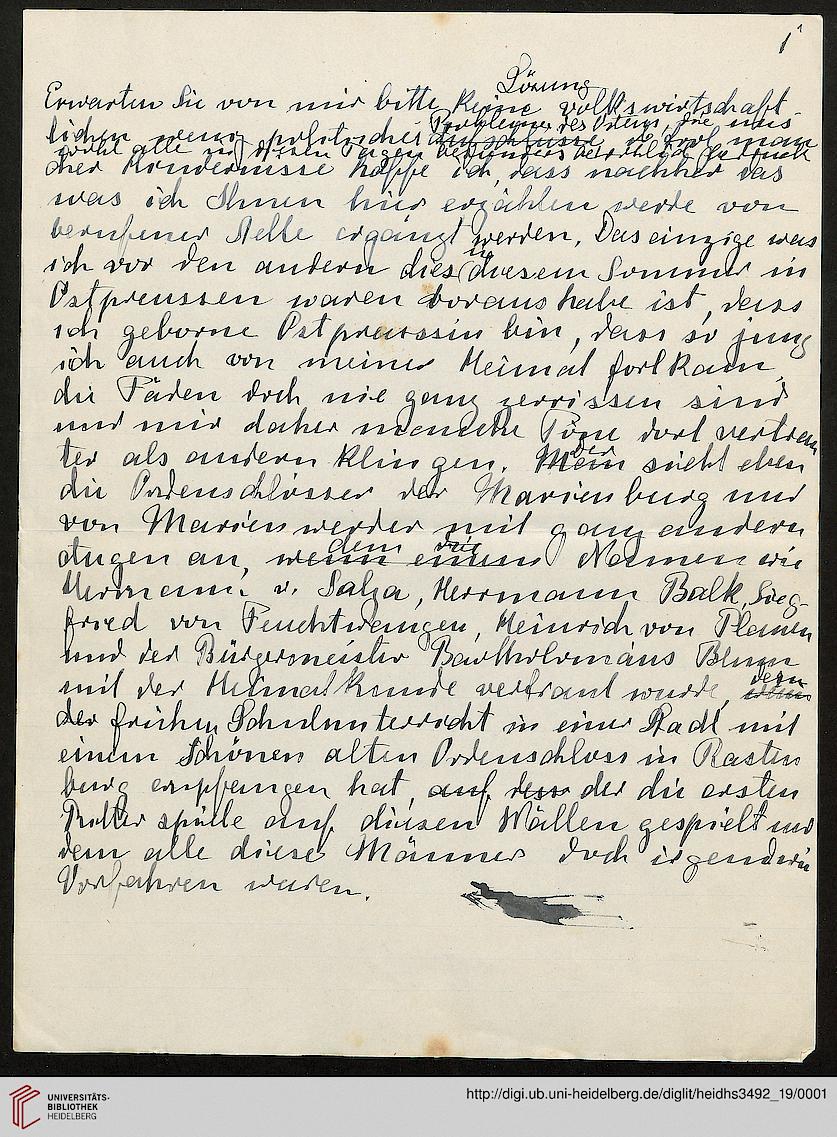 1
Lösung
Erwarten Sie von mir bitte keine volkswirtschaft-
lichen, wenig politischer Probleme des Ostens, die uns
wohl alle in diesen Tagen besonders
cher Hindernisse hoffe ich, dass nachher das
was ich Ihnen hier erzählen werde von
berufener Stelle ergänzt werden. Das einzige was
ich vor den andern die in diesem Sommer in
Ostpreussen waren voraus habe ist, dass
ich geborne Ostpreussin bin, dass so jung
ich auch von meiner Heimat fortkam,
die Fäden doch nie ganz zerrissen sind
und mir daher manche Töne dort vertrau
ter als andern klingen. Man sieht eben
die Ordensschlösser der Marienburg und
von Marienwerder mit ganz andern
Augen an, wenn einem Namen wie
dem die
Hermann v. Salza, Herrmann Balk, Sieg-
fried von Feuchtwangen, Heinrich von Plauen
und der Bürgermeister Bartholomäus Blume
mit der Heimatkunde vertraut wurde, dem
der frühen Schulunterricht in einer Stadt mit
einem schönen alten Ordensschloss in Rasten
burg empfangen hat, auf dess der die ersten
Ritterspiele auf diesen Wällen gespielt und
dem alle diese Männer doch irgendwie
Vorfahren waren.
UNIVERSITÄTS-
BIBLIOTHEK
HEIDELBERG
http://digi.ub.uni-heidelberg.de/diglit/heidhs3492_19/0001